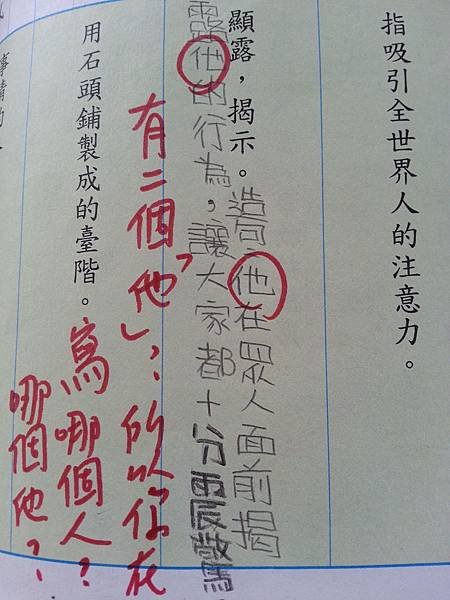 指吸引全世界人的注意力。
顯露,揭示。
造句:他在眾人面前揭
露他的行為,讓大家都十分震驚
有二個「他」,所以你在
寫哪個人?
哪個他?
用石頭鋪製成的臺階。
事情的